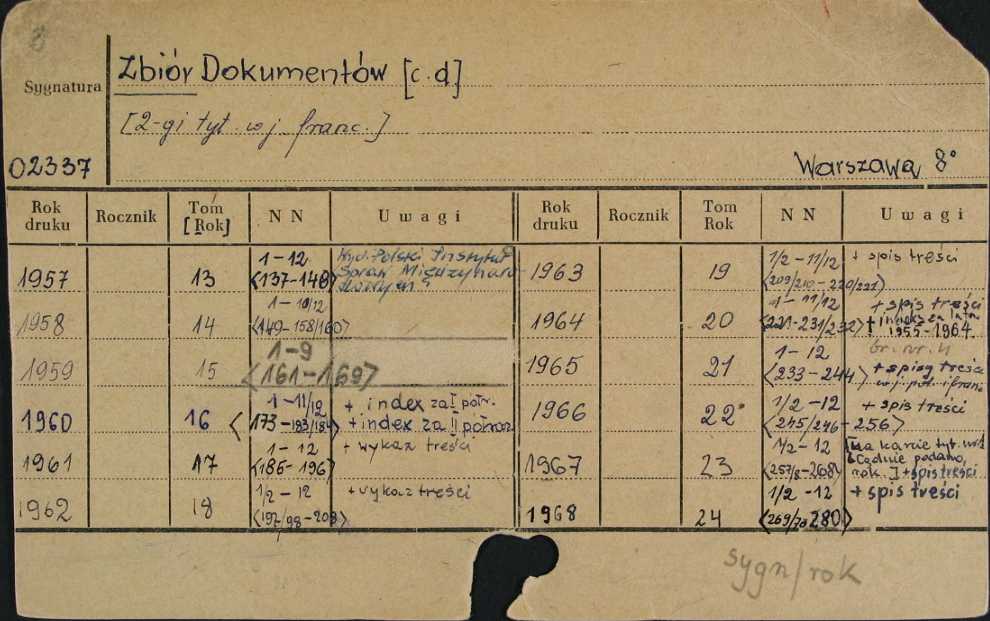 8
Sygnatura
Zbiór Dokumentów [c.d]
[2-gi tyt. w j. franc.]
02337
Warszawa 8°
Rok druku Rocznik Tom [Rok] N N Uwagi Rok druku Rocznik Tom Rok N N Uwagi
1957 13 1-12 <137-148> Wyd. Polski Instytut Spraw Międzynarodowych
1958 14 1-10/12 <149-158/160>
1959 15 1-9 <161-169>
1960 16 1-11/12 <173-183/184> + index za I półr. + index za II półrocze
1961 17 1-12 <185-196> + wykaz treści
1962 18 1/2-12 <197/98-208> + wykaz treści
1963 19 1/2-11/12 <209/210-220/221> + spis treści
1964 20 1-11/12 <221-231/232> + spis treści + indeks za lata 1955-1964.
1965 21 1-12 <233-244> br. nr. 4 + spisy treści w j. pol. i franc
1966 22 1/2-12 <245/246-256> + spis treści
1967 23 1/2-12 <257/8-268> [Na karcie tyt. podano, rok.] + spis treści
1968 24 1/2-12 <269/70 280> + spis treści
sygn/rok